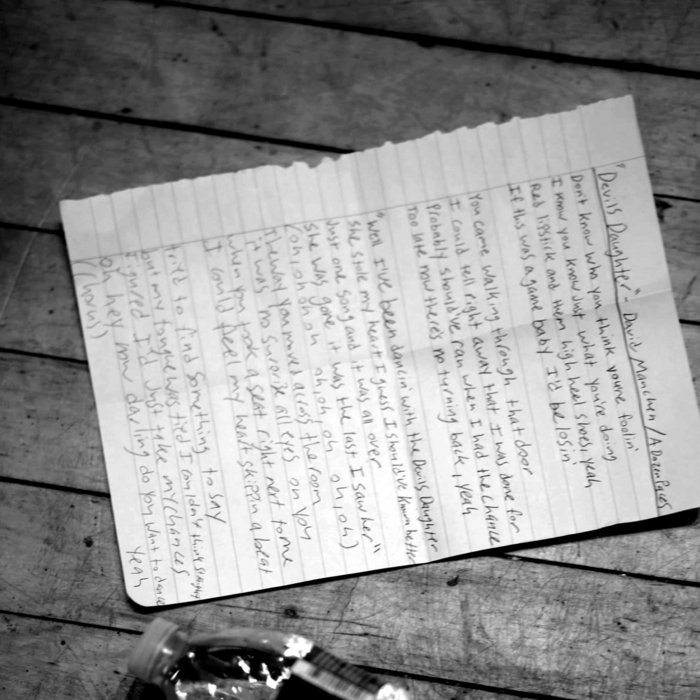 "Devils Daughter" - David Manchen / A Dozen Faces
Don't know who you think you're foolin'
I know you know just what you're doing
Red lipstick and them high heel shoes, yeah
If this was a game baby I'd be losin'
You came walking through that door
I could tell right away that I was done for
Probably should've ran when I had the chance
Too late now there's no turning back, yeah
"Well I've been dancin' with the Devils Daughter
She stole my heart I guess I should've known better
Just one song and it was all over
She was gone, it was the last I saw her"
(oh, oh oh oh oh, oh oh oh, oh)
The way you moved across the room
it was no surprise all eyes on you
when you took a seat right next to me
I could feel my heart skippin a beat
I tried to find something to say
but my tongue was tied I couldn't think straight
Figured I'd just take my chances
Oh hey now darling do you want to dance
yeah
(chorus)